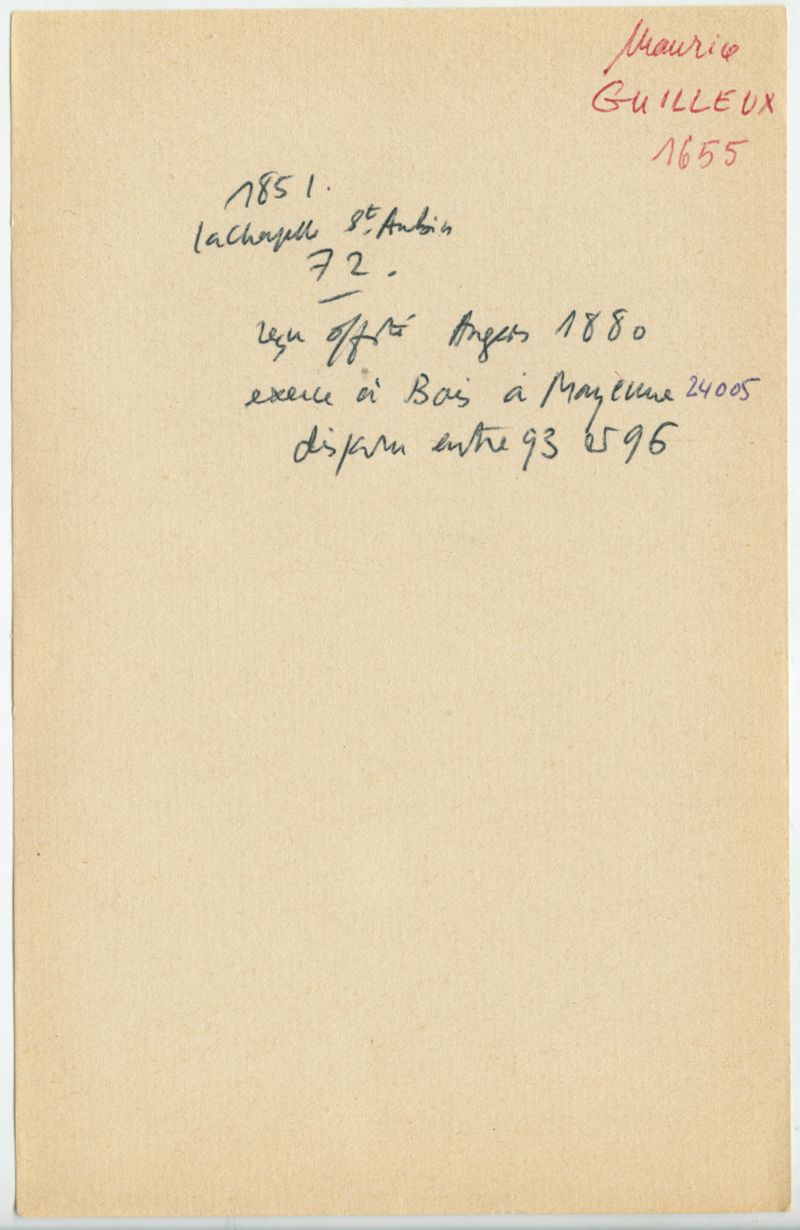 Maurice
GUILLEUX
1655
1851.
la Chapelle St. Aubin
72.
reçu Angers 1880
exerce à Bais à Mayenne 24005
disparu entre 93 et 96